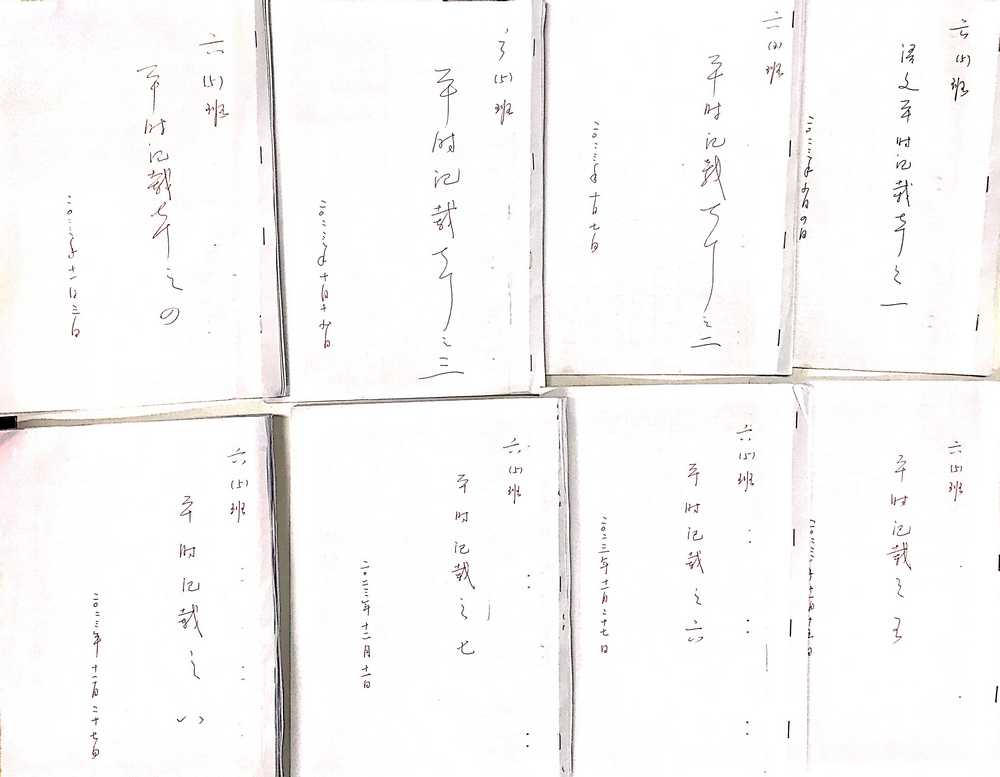 六(5)班
语文平时记载本之一
二〇二三年九月四日
六(5)班
平时记载本之二
二〇二三年十月七日
六(5)班
平时记载本之三
二〇二三年十月十九日
六(5)班
平时记载本之四
二〇二三年十一月三日
六(5)班
平时记载之五
二〇二三年十一月十五日
六(5)班
平时记载之六
二〇二三年十一月二十七日
六(5)班
平时记载之七
二〇二三年十二月十一日
六(5)班
平时记载之八
二〇二三年十二月二十七日